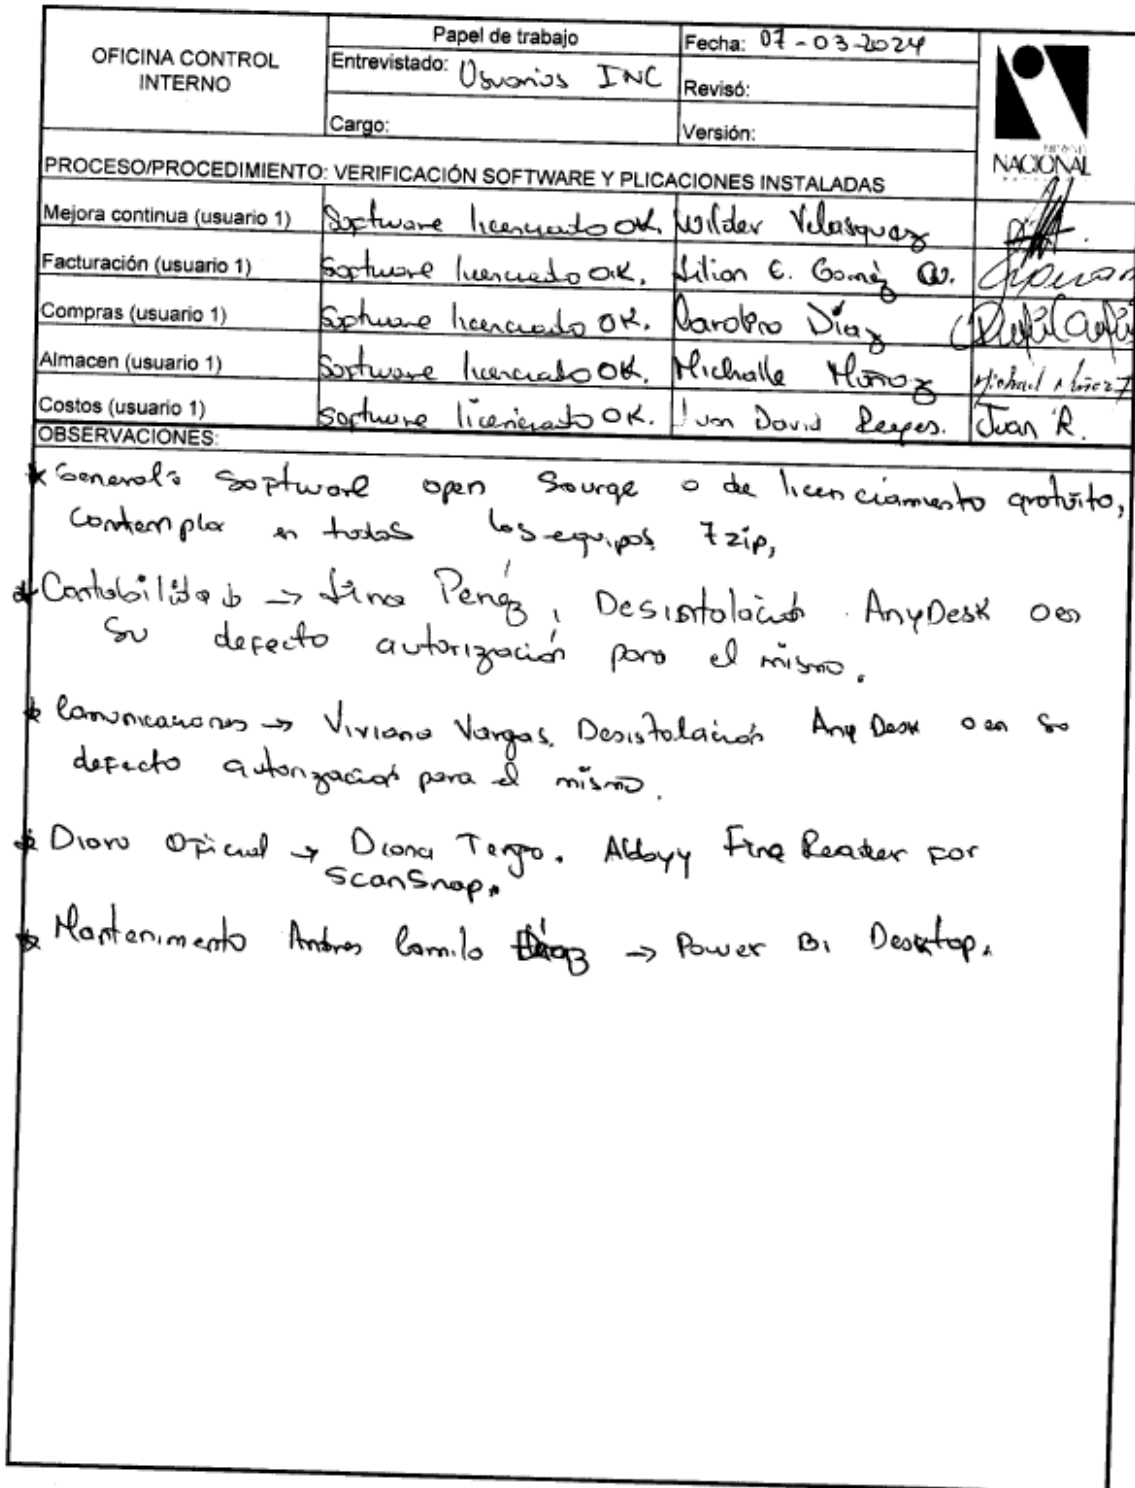 OFICINA CONTROL
INTERNO
Papel de trabajo
Entrevistado: Usuarios INC
Cargo:
Fecha: 07-03-2024
Revisó:
Versión:
NACIONAL
PROCESO/PROCEDIMIENTO: VERIFICACIÓN SOFTWARE Y PLICACIONES INSTALADAS
Mejora continua (usuario 1) Software licenciado OK. Wilder Velasquez
Facturación (usuario 1) Software licenciado OK. Lilian E. Goméz
Compras (usuario 1) Software licenciado OK. Carolina Díaz
Almacen (usuario 1) Software licenciado OK. Michalle Muñoz
Costos (usuario 1) Software licenciado OK. Juan David Reyes. Juan R.
OBSERVACIONES:
* General: Software open Sourge o de licenciamiento gratuito,
Contemplar en todos los equipos 7zip,
* Contabilidad → Lina Peréz, Desistolación AnyDesk o en
su defecto autorización para el mismo.
* Comunicaciones → Viviana Vargas. Desistolación Any Desk o en su
defecto autorización para el mismo.
* Diario Oficial → Diana Abbyy Fine Reader for
ScanSnap.
* Mantenimento Andres Camilo → Power Bi Desktop.